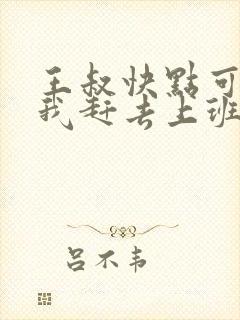 王叔快點可
我赶去上班
吕不韦